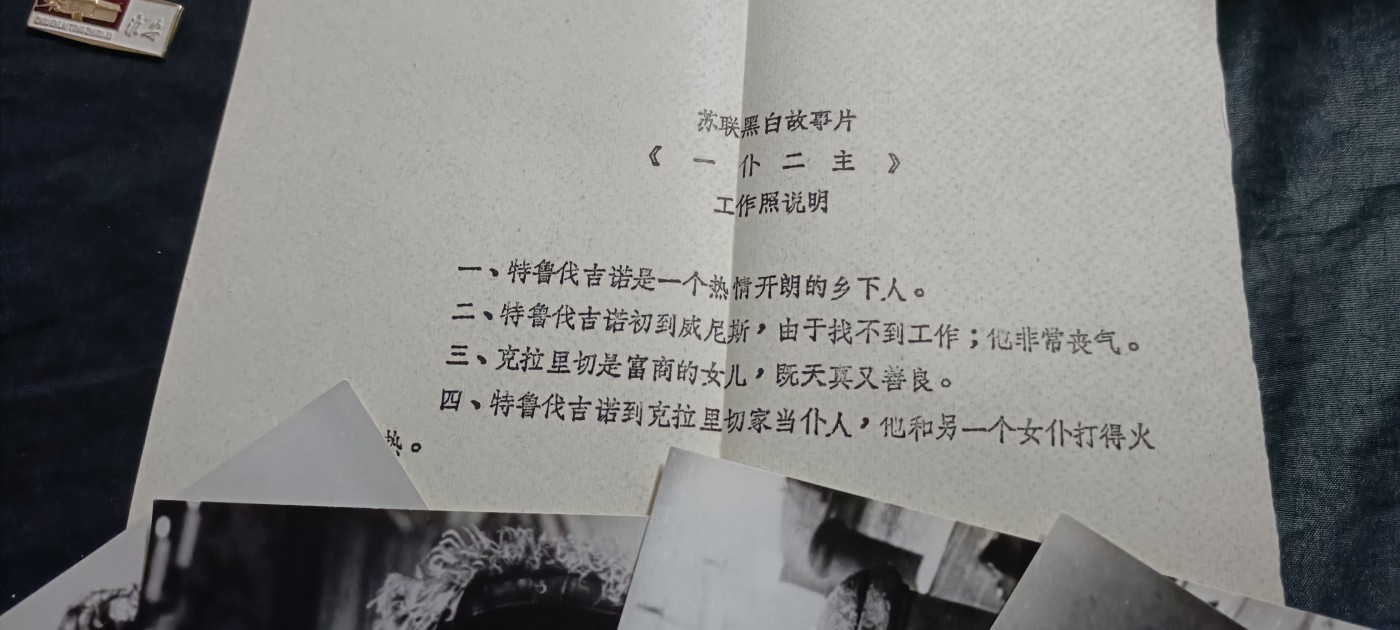 苏联黑白故事片
《一仆二主》
工作照说明
一、特鲁伐吉诺是一个热情开朗的乡下人。
二、特鲁伐吉诺初到威尼斯，由于找不到工作；他非常丧气。
三、克拉里切是富商的女儿，既天真又善良。
四、特鲁伐吉诺到克拉里切家当仆人，他和另一个女仆打得火
热。